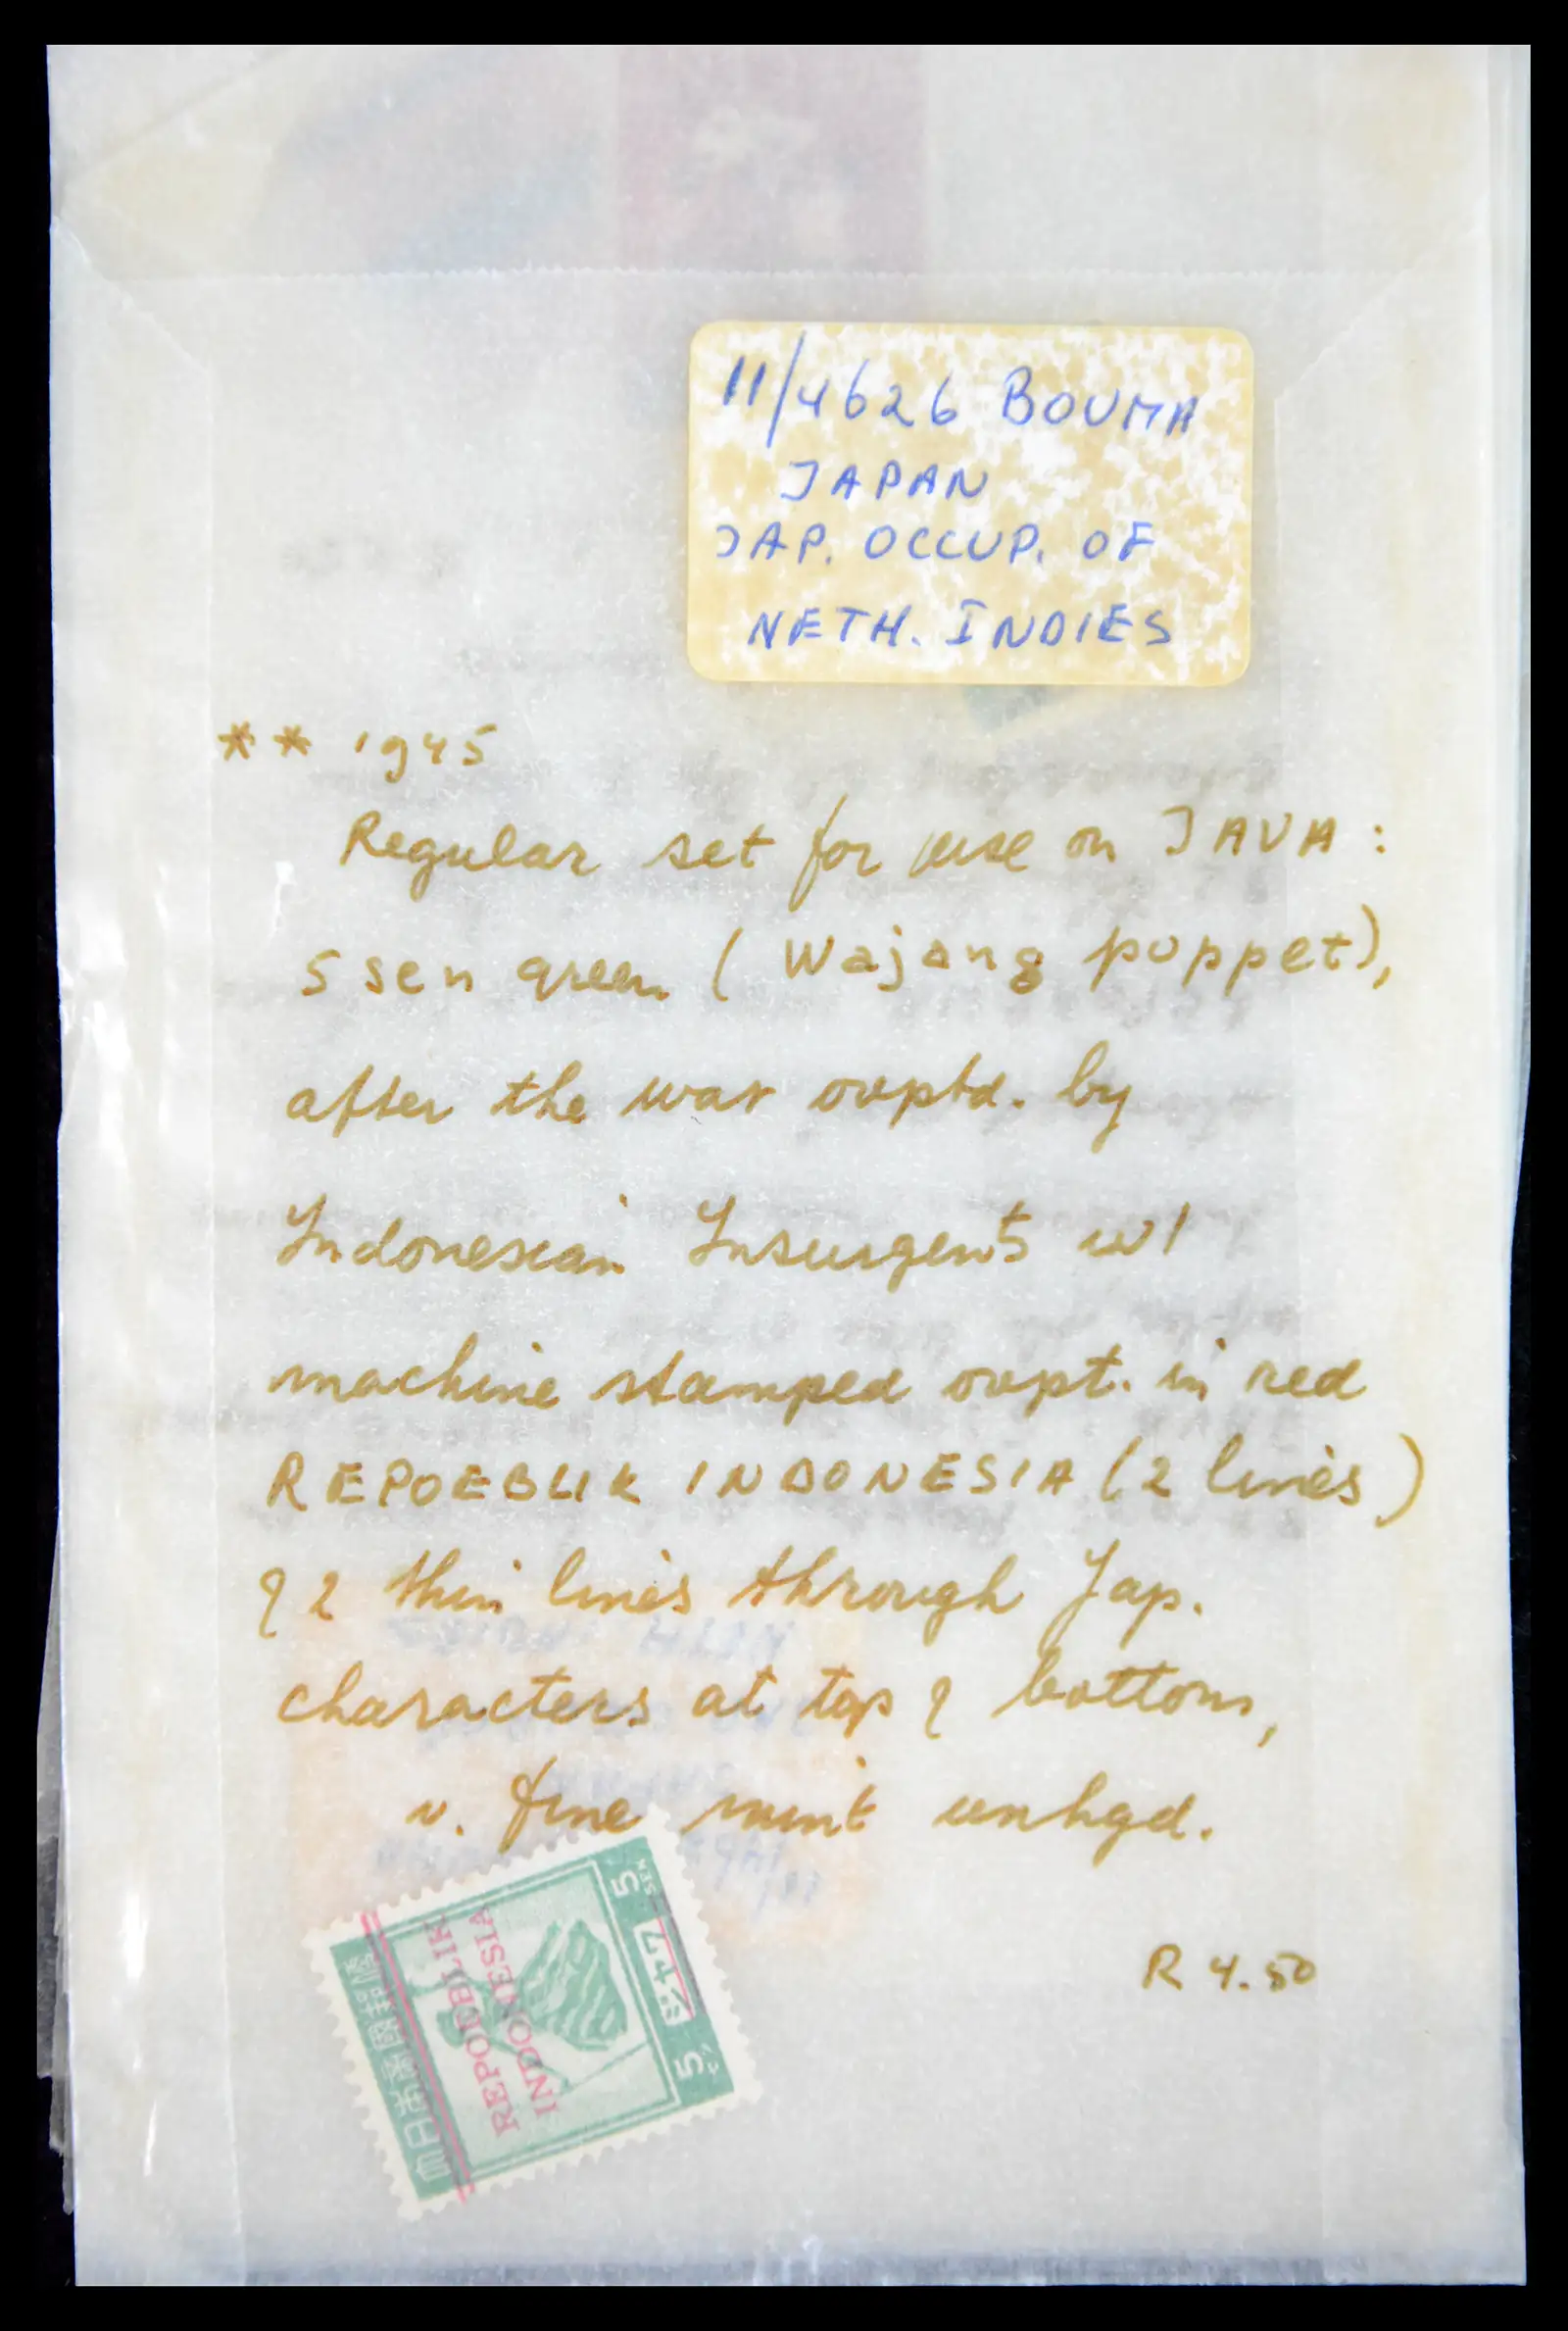 11/4626 BOUMA
JAPAN
JAP. OCCUP. OF
NETH. INDIES
** 1945
Regular set for use on JAVA :
5 sen green ( Wajang puppet),
after the war ovptd. by
Indonesian Insurgents w/
machine stamped ovpt. in red
REPOEBLIK INDONESIA (2 lines)
& 2 thin lines through Jap.
characters at top & bottom,
v. fine mint unhgd.
R 4.50
REPOEBLIK
INDONESIA
5 SEN
5